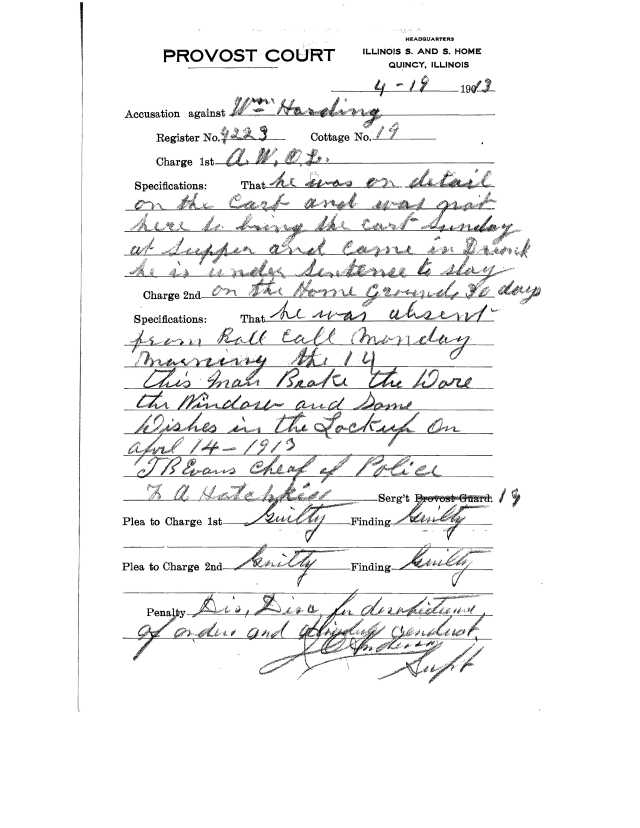 HEADQUARTERS
PROVOST COURT
ILLINOIS S. AND S. HOME
QUINCY, ILLINOIS
4 - 19 1913
Accusation against Wm Harding
Register No. 4223 Cottage No. 19
Charge 1st A. W. O. L.
Specifications: That he was on detail
on the Cart and was not
here to bring the cart Sunday
at Supper and came in Drunk
he is under Sentence to stay
Charge 2nd On the Home Grounds 30 days
Specifications: That he was absent
from Roll Call Monday
Morning the 14
this man Brake the Ware
the Window and Some
Dishes in the Lockup On
April 14 - 1913
J B Evans Cheaf of Police
F A Hatchkiss Serg't Provost Guard. 19
Plea to Charge 1st Guilty Finding Guilty
Plea to Charge 2nd Guilty Finding Guilty
Penalty Dis, Disc, for disobedience
of orders and conduct
Anderson
Supt